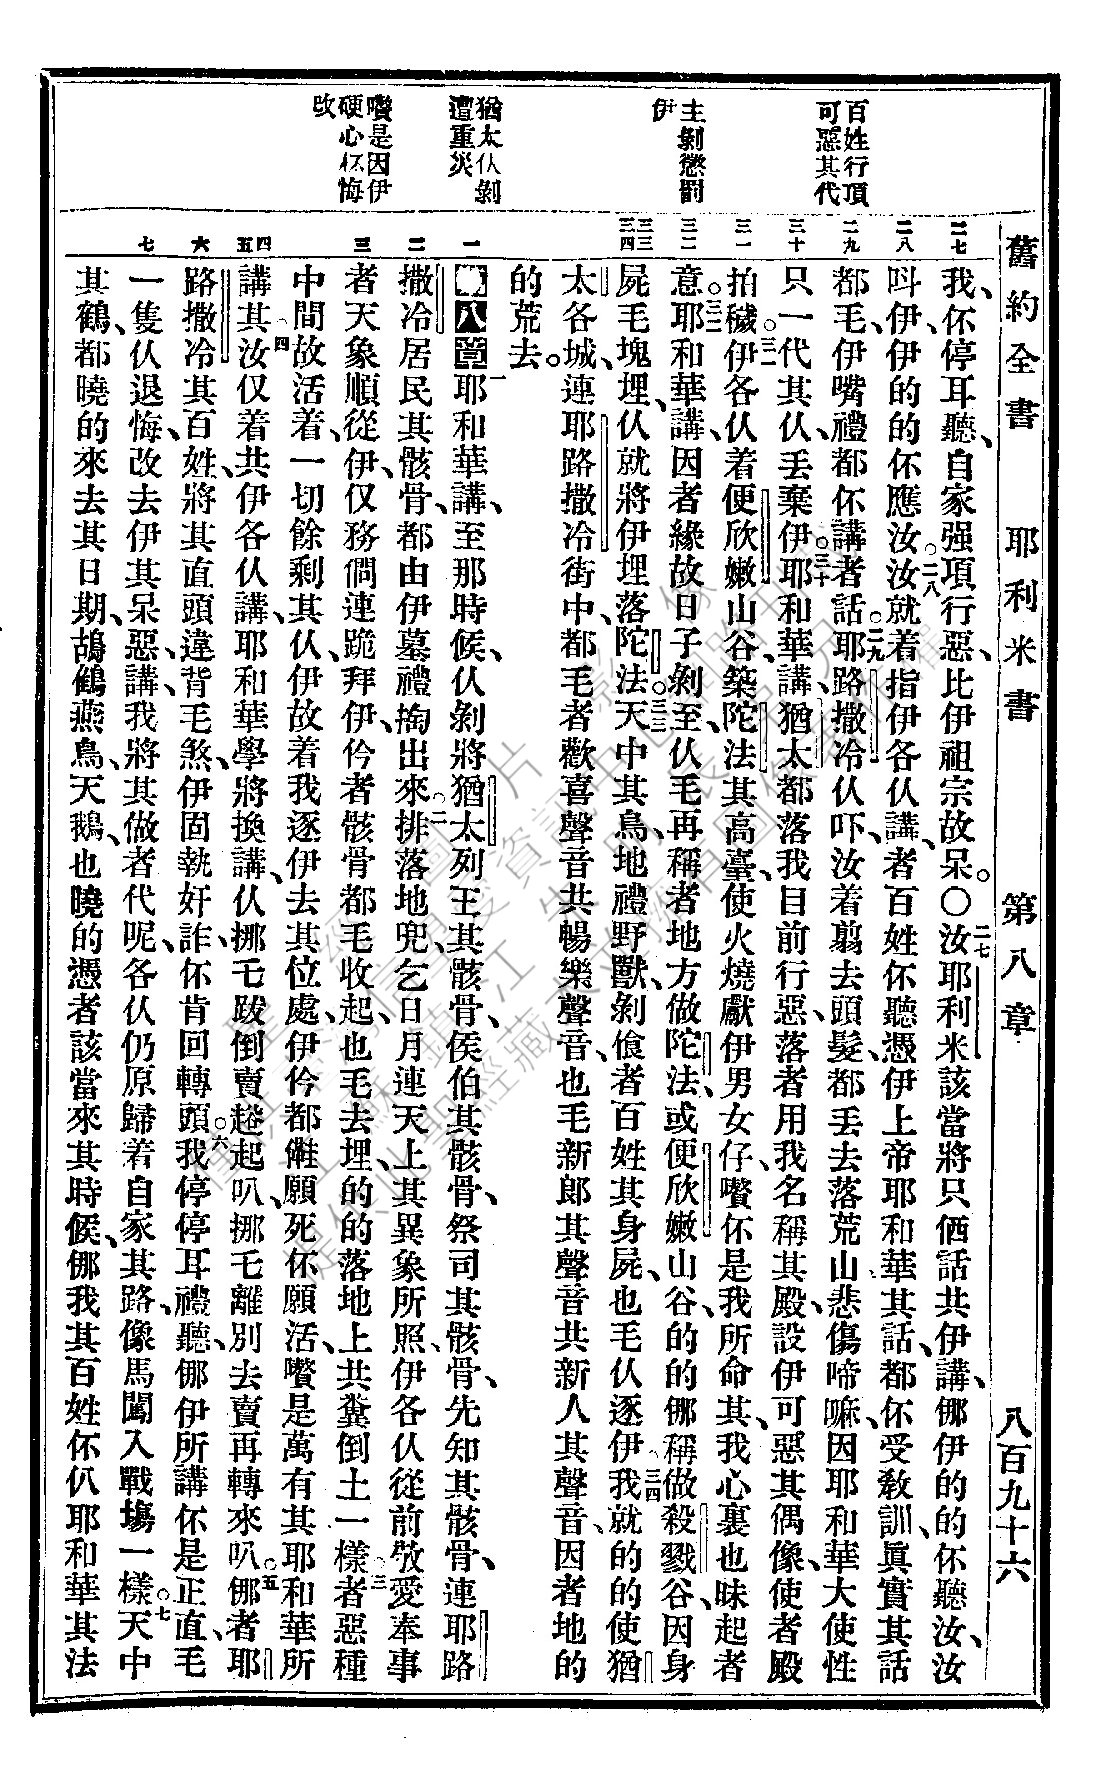 舊約全書 耶利米書 第八章 八百九十六
百姓行頂
可惡其代
主剝懲罰
伊
猶太仈剝
遭重災
囋是因伊
硬心伓悔
改
二七
二八
二九
三十
三一
三二
三三
三四
一
二
三
四
五
六
七
我、伓停耳聽、自家强項行惡、比伊祖宗故呆。〇二七汝耶利米該當將只価話共伊講、㑚伊的的伓聽汝、汝
呌伊、伊的的伓應汝。二八汝就着指伊各仈講、者百姓伓聽憑伊上帝耶和華其話、都伓受敎訓、眞實其話
都毛、伊嘴禮都伓講者話。二九耶路撒冷仈吓、汝着翦去頭髮、都丟去落荒山悲傷啼嘛、因耶和華大使性
只一代其仈、丢棄伊。三十耶和華講、猶太都落我目前行惡、落者用我名稱其殿、設伊可惡其偶像、使者殿
拍穢。三一伊各仈着便欣嫩山谷、築陀法其高臺、使火燒獻伊男女仔、囋伓是我所命其、我心裏也昧起者
意。三二耶和華講、因者緣故日子剝至、仈毛再稱者地方做陀法、或便欣嫩山谷、的的㑚稱做殺戮谷、因身
屍毛塊埋、仈就將伊埋落陀法。三三天中其鳥、地禮野獸、剝飡者百姓其身屍、也毛仈逐伊。三四我就的的使猶
太各城、連耶路撒冷街中、都毛者歡喜聲音共暢樂聲音、也毛新郎其聲音共新人其聲音、因者地的
的荒去。
第八章 一耶和華講、至那時候、仈剝將猶太列王其骸骨、侯伯其骸骨、祭司其骸骨、先知其骸骨、連耶路
撒冷居民其骸骨、都由伊墓禮掏出來。二排落地兜、乞日月連天上其異象所照、伊各仈從前敬愛奉事
者天象、順從伊、仅務僩連跪拜伊、伊仱者骸骨都毛收起、也毛去埋、的落地上共糞倒土一樣。三者惡種
中間、故活着一切餘剩其仈、伊故着我逐伊去其位處、伊仱都雔願死伓願活、囋是萬有其耶和華所
講其。四汝仅着共伊各仈講、耶和華學將換講、仈挪乇跋倒賣趒起叭、挪乇離別去賣再轉來叭。五㑚者耶
路撒冷其百姓、將其直頭違背毛煞、伊固執奸詐、伓肯回轉頭。六我停停耳禮聽、㑚伊所講伓是正直、毛
一隻仈退悔、改去伊其呆惡、講我將其做者代呢、各仈仍原歸着自家其路、像馬闖入戰塲一樣。七天中
其鶴、都曉的來去其日期、鴣鶴燕鳥、天鵝、也曉的憑者該當來其時候、㑚我其百姓伓仈耶和華其法